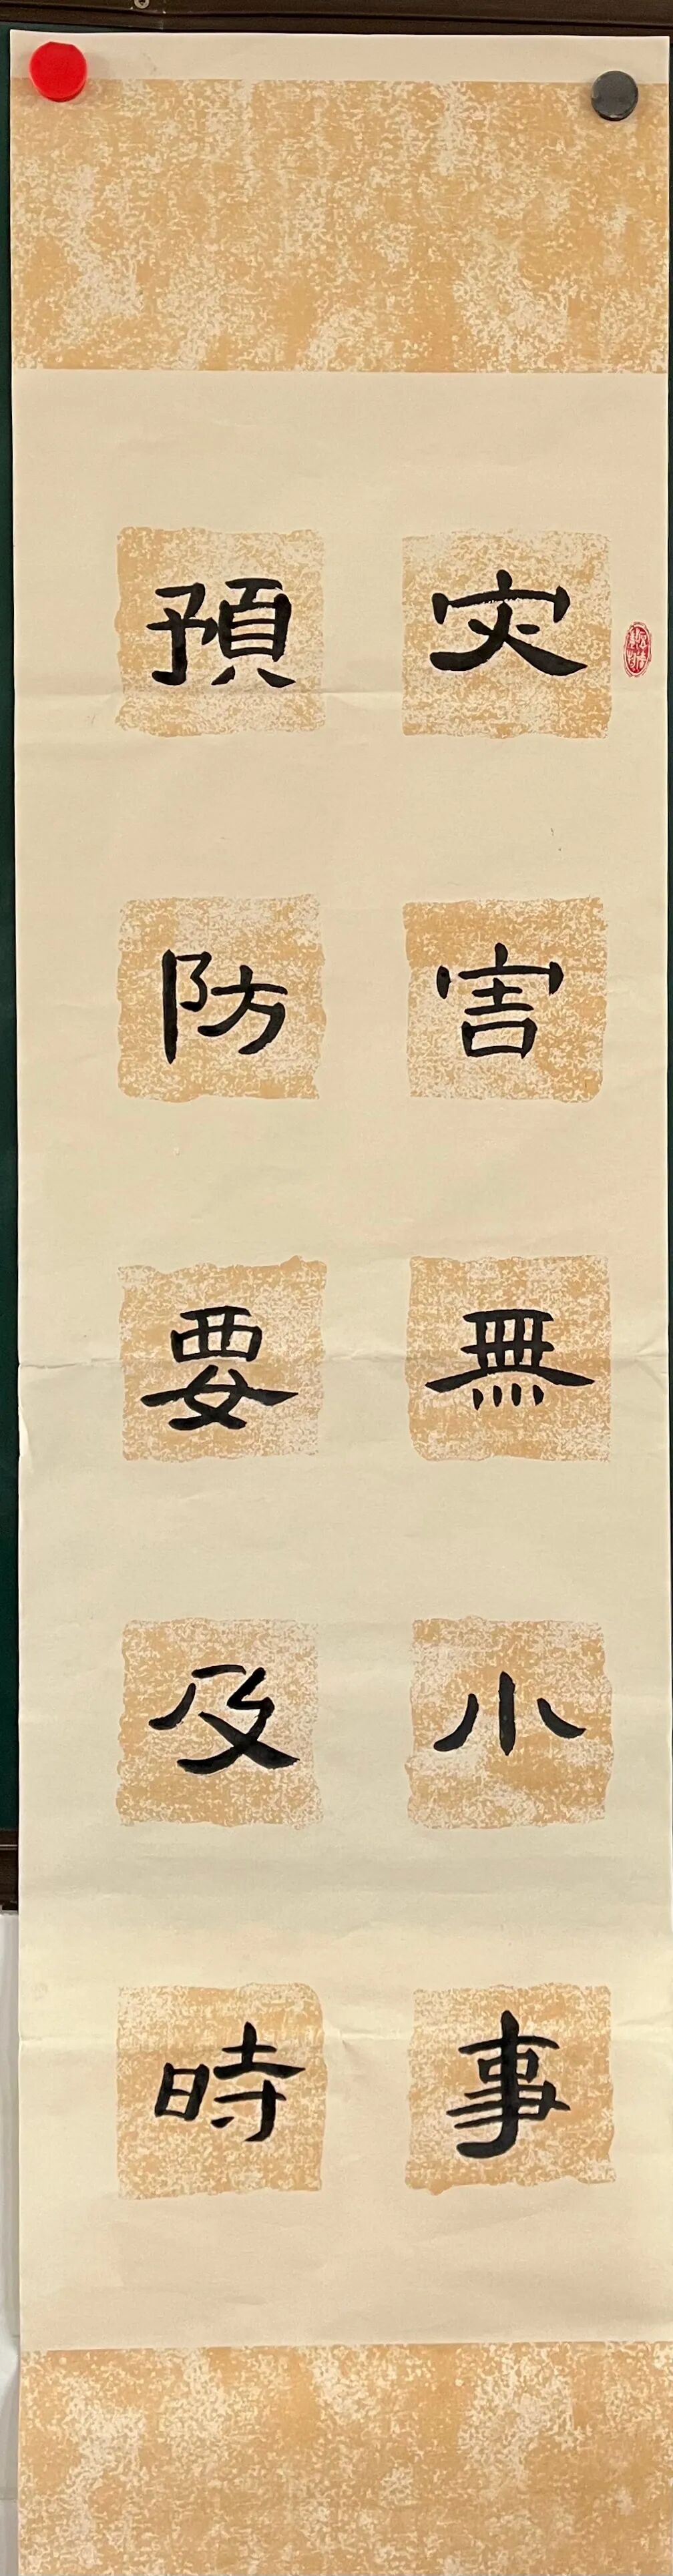 灾害無小事
預防要及時